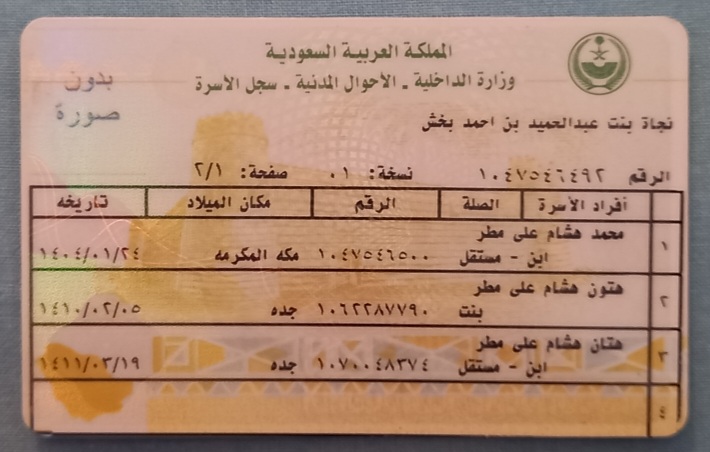 المملكة العربية السعودية
وزارة الداخلية - الأحوال المدنية - سجل الأسرة
بدون
صورة
نجاة بنت عبدالحميد بن احمد بخش
الرقم ١٠٤٧٥٤٦٤٩٢ نسخة: ٠١ صفحة: ٢/١
أفراد الأسرة الصلة الرقم مكان الميلاد تاريخه
١ محمد هشام على مطر
ابن - مستقل ١٠٤٧٥٤٦٥٠٠ مكه المكرمه ١٤٠٤/٠١/٢٤
٢ هتون هشام على مطر
بنت ١٠٦٢٢٨٧٧٩٠ جده ١٤١٠/٠٢/٠٥
٣ هتان هشام على مطر
ابن - مستقل ١٠٧٠٠٤٨٣٧٤ جده ١٤١١/٠٣/١٩
٤